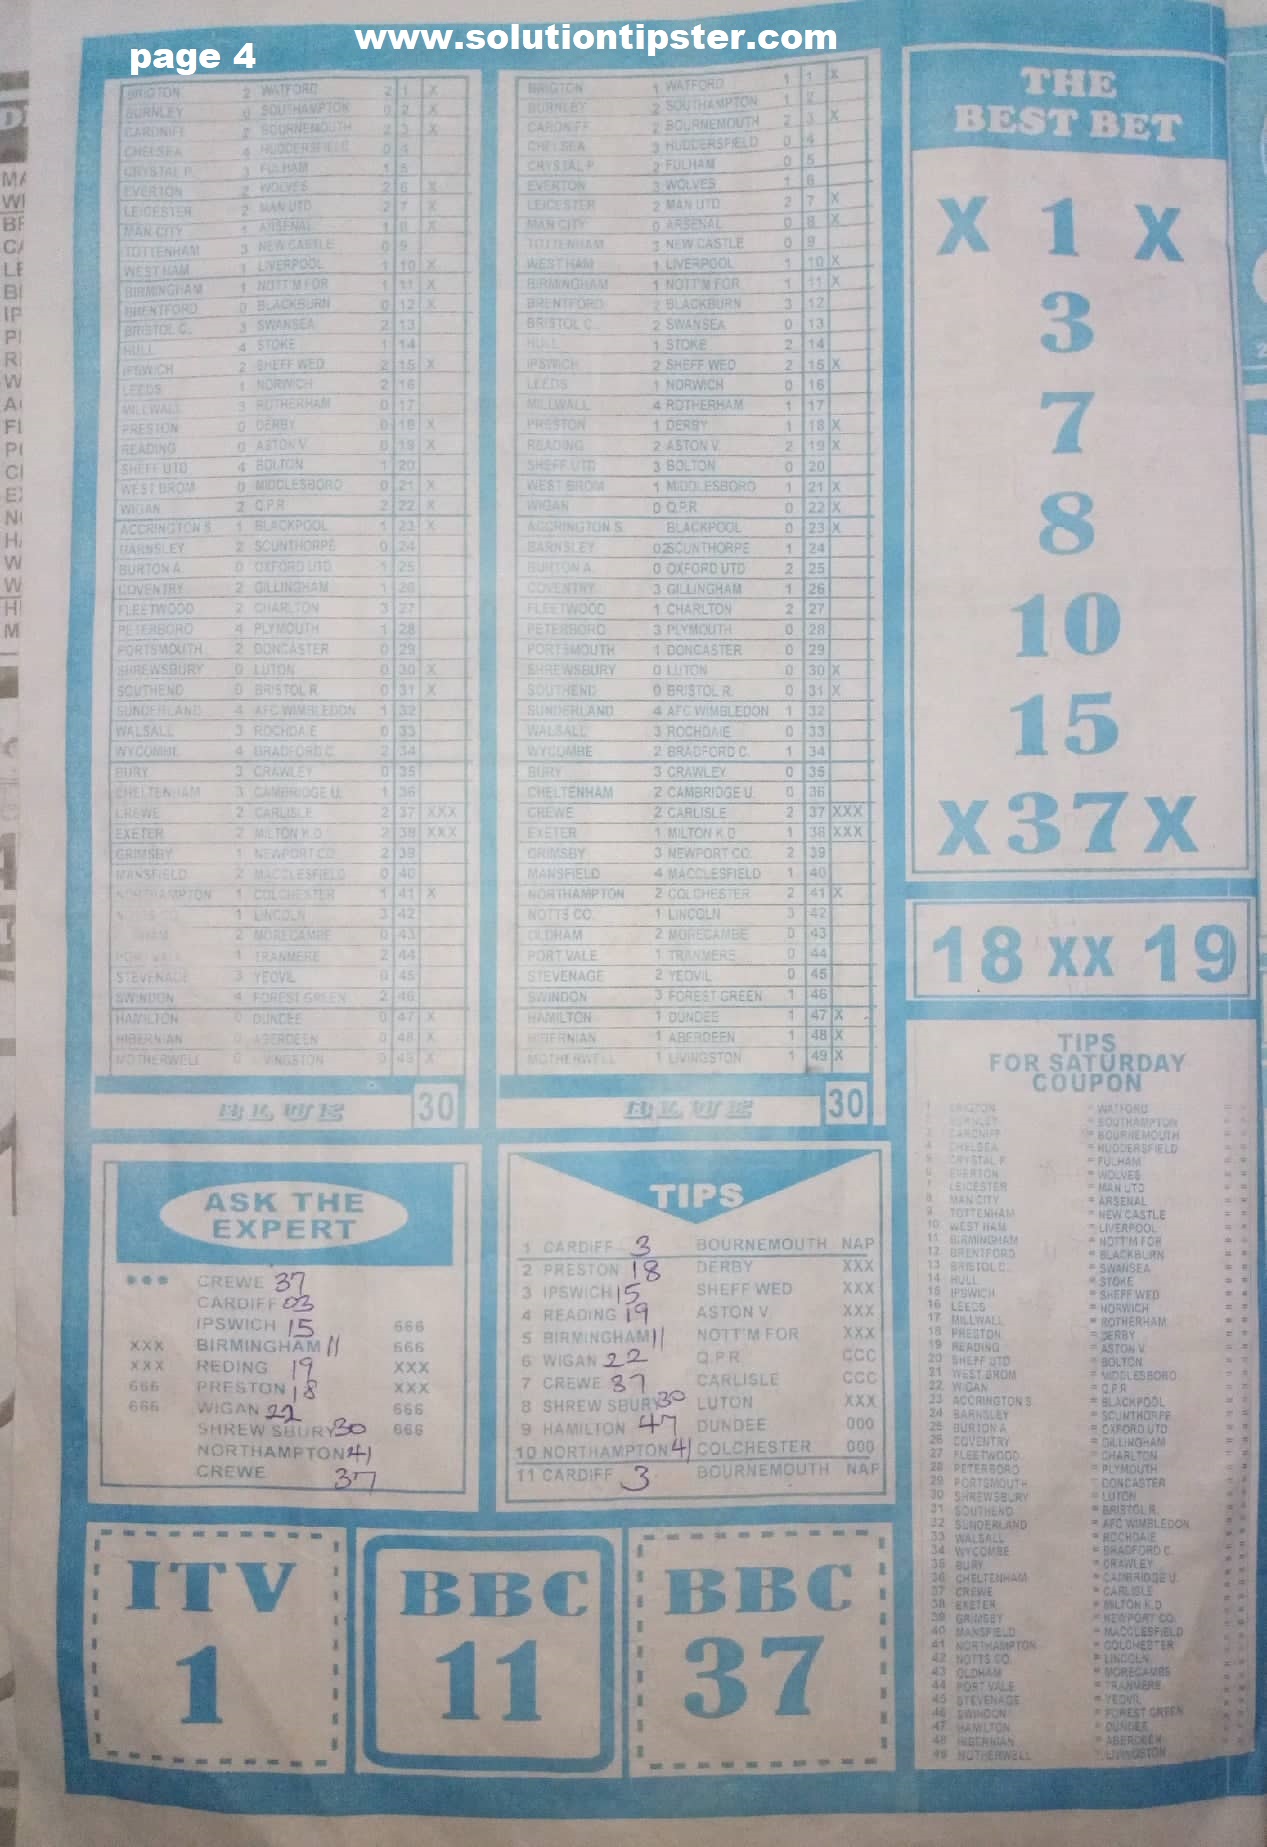 page 4
www.solutiontipster.com
BRIGTON 2 WATFORD 2 1 X
BURNLEY 0 SOUTHAMPTON 0 2 X
CARDNIFF 2 BOURNEMOUTH 2 3 X
CHELSEA 4 HUDDERSFIELD 0 4
CRYSTAL P. 3 FULHAM 1 5
EVERTON 2 WOLVES 2 6 X
LEICESTER 2 MAN UTD 2 7 X
MAN CITY 1 ARSENAL 1 8 X
TOTTENHAM 3 NEW CASTLE 0 9
WEST HAM 1 LIVERPOOL 1 10 X
BIRMINGHAM 1 NOTT'M FOR 1 11 X
BRENTFORD 0 BLACKBURN 0 12 X
BRISTOL C. 3 SWANSEA 2 13
HULL 4 STOKE 1 14
IPSWICH 2 SHEFF WED 2 15 X
LEEDS 1 NORWICH 2 16
MILLWALL 3 ROTHERHAM 0 17
PRESTON 0 DERBY 0 18 X
READING 0 ASTON V. 0 19 X
SHEFF UTD 4 BOLTON 1 20
WEST BROM 0 MIDDLESBORO 0 21 X
WIGAN 2 Q.P.R 2 22 X
ACCRINGTON S. 1 BLACKPOOL 1 23 X
BARNSLEY 2 SCUNTHORPE 0 24
BURTON A. 0 OXFORD UTD 1 25
COVENTRY 2 GILLINGHAM 1 26
FLEETWOOD 2 CHARLTON 3 27
PETERBORO 4 PLYMOUTH 1 28
PORTSMOUTH 2 DONCASTER 0 29
SHREWSBURY 0 LUTON 0 30 X
SOUTHEND 0 BRISTOL R. 0 31 X
SUNDERLAND 4 AFC WIMBLEDON 1 32
WALSALL 3 ROCHDALE 0 33
WYCOMBE 4 BRADFORD C. 2 34
BURY 3 CRAWLEY 0 35
CHELTENHAM 3 CAMBRIDGE U. 1 36
CREWE 2 CARLISLE 2 37 XXX
EXETER 2 MILTON K.D 2 38 XXX
GRIMSBY 1 NEWPORT CO. 2 39
MANSFIELD 2 MACCLESFIELD 0 40
NORTHAMPTON 1 COLCHESTER 1 41 X
1 LINCOLN 3 42
2 MORECAMBE 0 43
PORT VALE 1 TRANMERE 2 44
STEVENAGE 3 YEOVIL 0 45
SWINDON 4 FOREST GREEN 2 46
HAMILTON 0 DUNDEE 0 47 X
HIBERNIAN 0 ABERDEEN 0 48 X
MOTHERWELL 0 LIVINGSTON 0 49 X
30
BRIGTON 1 WATFORD 1 1 X
BURNLEY 2 SOUTHAMPTON 1 2
CARDNIFF 2 BOURNEMOUTH 2 3 X
CHELSEA 3 HUDDERSFIELD 0 4
CRYSTAL P. 2 FULHAM 0 5
EVERTON 3 WOLVES 1 6
LEICESTER 2 MAN UTD 2 7 X
MAN CITY 0 ARSENAL 0 8 X
TOTTENHAM 3 NEW CASTLE 0 9
WEST HAM 1 LIVERPOOL 1 10 X
BIRMINGHAM 1 NOTT'M FOR 1 11 X
BRENTFORD 2 BLACKBURN 3 12
BRISTOL C. 2 SWANSEA 0 13
HULL 1 STOKE 2 14
IPSWICH 2 SHEFF WED 2 15 X
LEEDS 1 NORWICH 0 16
MILLWALL 4 ROTHERHAM 1 17
PRESTON 1 DERBY 1 18 X
READING 2 ASTON V. 2 19 X
SHEFF UTD 3 BOLTON 0 20
WEST BROM 1 MIDDLESBORO 1 21 X
WIGAN 0 Q.P.R 0 22 X
ACCRINGTON S. BLACKPOOL 0 23 X
BARNSLEY SCUNTHORPE 1 24
BURTON A. 0 OXFORD UTD 2 25
COVENTRY 3 GILLINGHAM 1 26
FLEETWOOD 1 CHARLTON 2 27
PETERBORO 3 PLYMOUTH 0 28
PORTSMOUTH 1 DONCASTER 0 29
SHREWSBURY 0 LUTON 0 30 X
SOUTHEND 0 BRISTOL R. 0 31 X
SUNDERLAND 4 AFC WIMBLEDON 1 32
WALSALL 3 ROCHDALE 0 33
WYCOMBE 2 BRADFORD C. 1 34
BURY 3 CRAWLEY 0 35
CHELTENHAM 2 CAMBRIDGE U. 0 36
CREWE 2 CARLISLE 2 37 XXX
EXETER 1 MILTON K.D 1 38 XXX
GRIMSBY 3 NEWPORT CO. 2 39
MANSFIELD 4 MACCLESFIELD 1 40
NORTHAMPTON 2 COLCHESTER 2 41 X
NOTTS CO. 1 LINCOLN 3 42
OLDHAM 2 MORECAMBE 0 43
PORT VALE 1 TRANMERE 0 44
STEVENAGE 2 YEOVIL 0 45
SWINDON 3 FOREST GREEN 1 46
HAMILTON 1 DUNDEE 1 47 X
HIBERNIAN 1 ABERDEEN 1 48 X
MOTHERWELL 1 LIVINGSTON 1 49 X
30
THE
BEST BET
X 1 X
3
7
8
10
15
X 37 X
18 XX 19
ASK THE
EXPERT
*** CREWE 37
CARDIFF 03
IPSWICH 15 666
XXX BIRMINGHAM 11 666
XXX REDING 19 XXX
666 PRESTON 18 XXX
666 WIGAN 22 666
SHREW SBURY 30 666
NORTHAMPTON 41
CREWE 37
TIPS
1 CARDIFF 3 BOURNEMOUTH NAP
2 PRESTON 18 DERBY XXX
3 IPSWICH 15 SHEFF WED XXX
4 READING 19 ASTON V. XXX
5 BIRMINGHAM 11 NOTT'M FOR XXX
6 WIGAN 22 Q.P.R CCC
7 CREWE 37 CARLISLE CCC
8 SHREW SBURY 30 LUTON XXX
9 HAMILTON 47 DUNDEE 000
10 NORTHAMPTON 41 COLCHESTER 000
11 CARDIFF 3 BOURNEMOUTH NAP
TIPS
FOR SATURDAY
COUPON
1 BRIGTON = WATFORD = =
2 BURNLEY = SOUTHAMPTON = =
3 CARDNIFF = BOURNEMOUTH = =
4 CHELSEA = HUDDERSFIELD = =
5 CRYSTAL P. = FULHAM = =
6 EVERTON = WOLVES = =
7 LEICESTER = MAN UTD = =
8 MAN CITY = ARSENAL = =
9 TOTTENHAM = NEW CASTLE = =
10 WEST HAM = LIVERPOOL = =
11 BIRMINGHAM = NOTT'M FOR = =
12 BRENTFORD = BLACKBURN = =
13 BRISTOL C. = SWANSEA = =
14 HULL = STOKE = =
15 IPSWICH = SHEFF WED = =
16 LEEDS = NORWICH = =
17 MILLWALL = ROTHERHAM = =
18 PRESTON = DERBY = =
19 READING = ASTON V. = =
20 SHEFF UTD = BOLTON = =
21 WEST BROM = MIDDLESBORO = =
22 WIGAN = Q.P.R = =
23 ACCRINGTON S = BLACKPOOL = =
24 BARNSLEY = SCUNTHORPE = =
25 BURTON A = OXFORD UTD = =
26 COVENTRY = GILLINGHAM = =
27 FLEETWOOD = CHARLTON = =
28 PETERBORO = PLYMOUTH = =
29 PORTSMOUTH = DONCASTER = =
30 SHREWSBURY = LUTON = =
31 SOUTHEND = BRISTOL R. = =
32 SUNDERLAND = AFC WIMBLEDON = =
33 WALSALL = ROCHDALE = =
34 WYCOMBE = BRADFORD C. = =
35 BURY = CRAWLEY = =
36 CHELTENHAM = CAMBRIDGE U. = =
37 CREWE = CARLISLE = =
38 EXETER = MILTON K.D = =
39 GRIMSBY = NEWPORT CO. = =
40 MANSFIELD = MACCLESFIELD = =
41 NORTHAMPTON = COLCHESTER = =
42 NOTTS CO. = LINCOLN = =
43 OLDHAM = MORECAMBE = =
44 PORT VALE = TRANMERE = =
45 STEVENAGE = YEOVIL = =
46 SWINDON = FOREST GREEN = =
47 HAMILTON = DUNDEE = =
48 HIBERNIAN = ABERDEEN = =
49 MOTHERWELL = LIVINGSTON = =
ITV
1
BBC
11
BBC
37